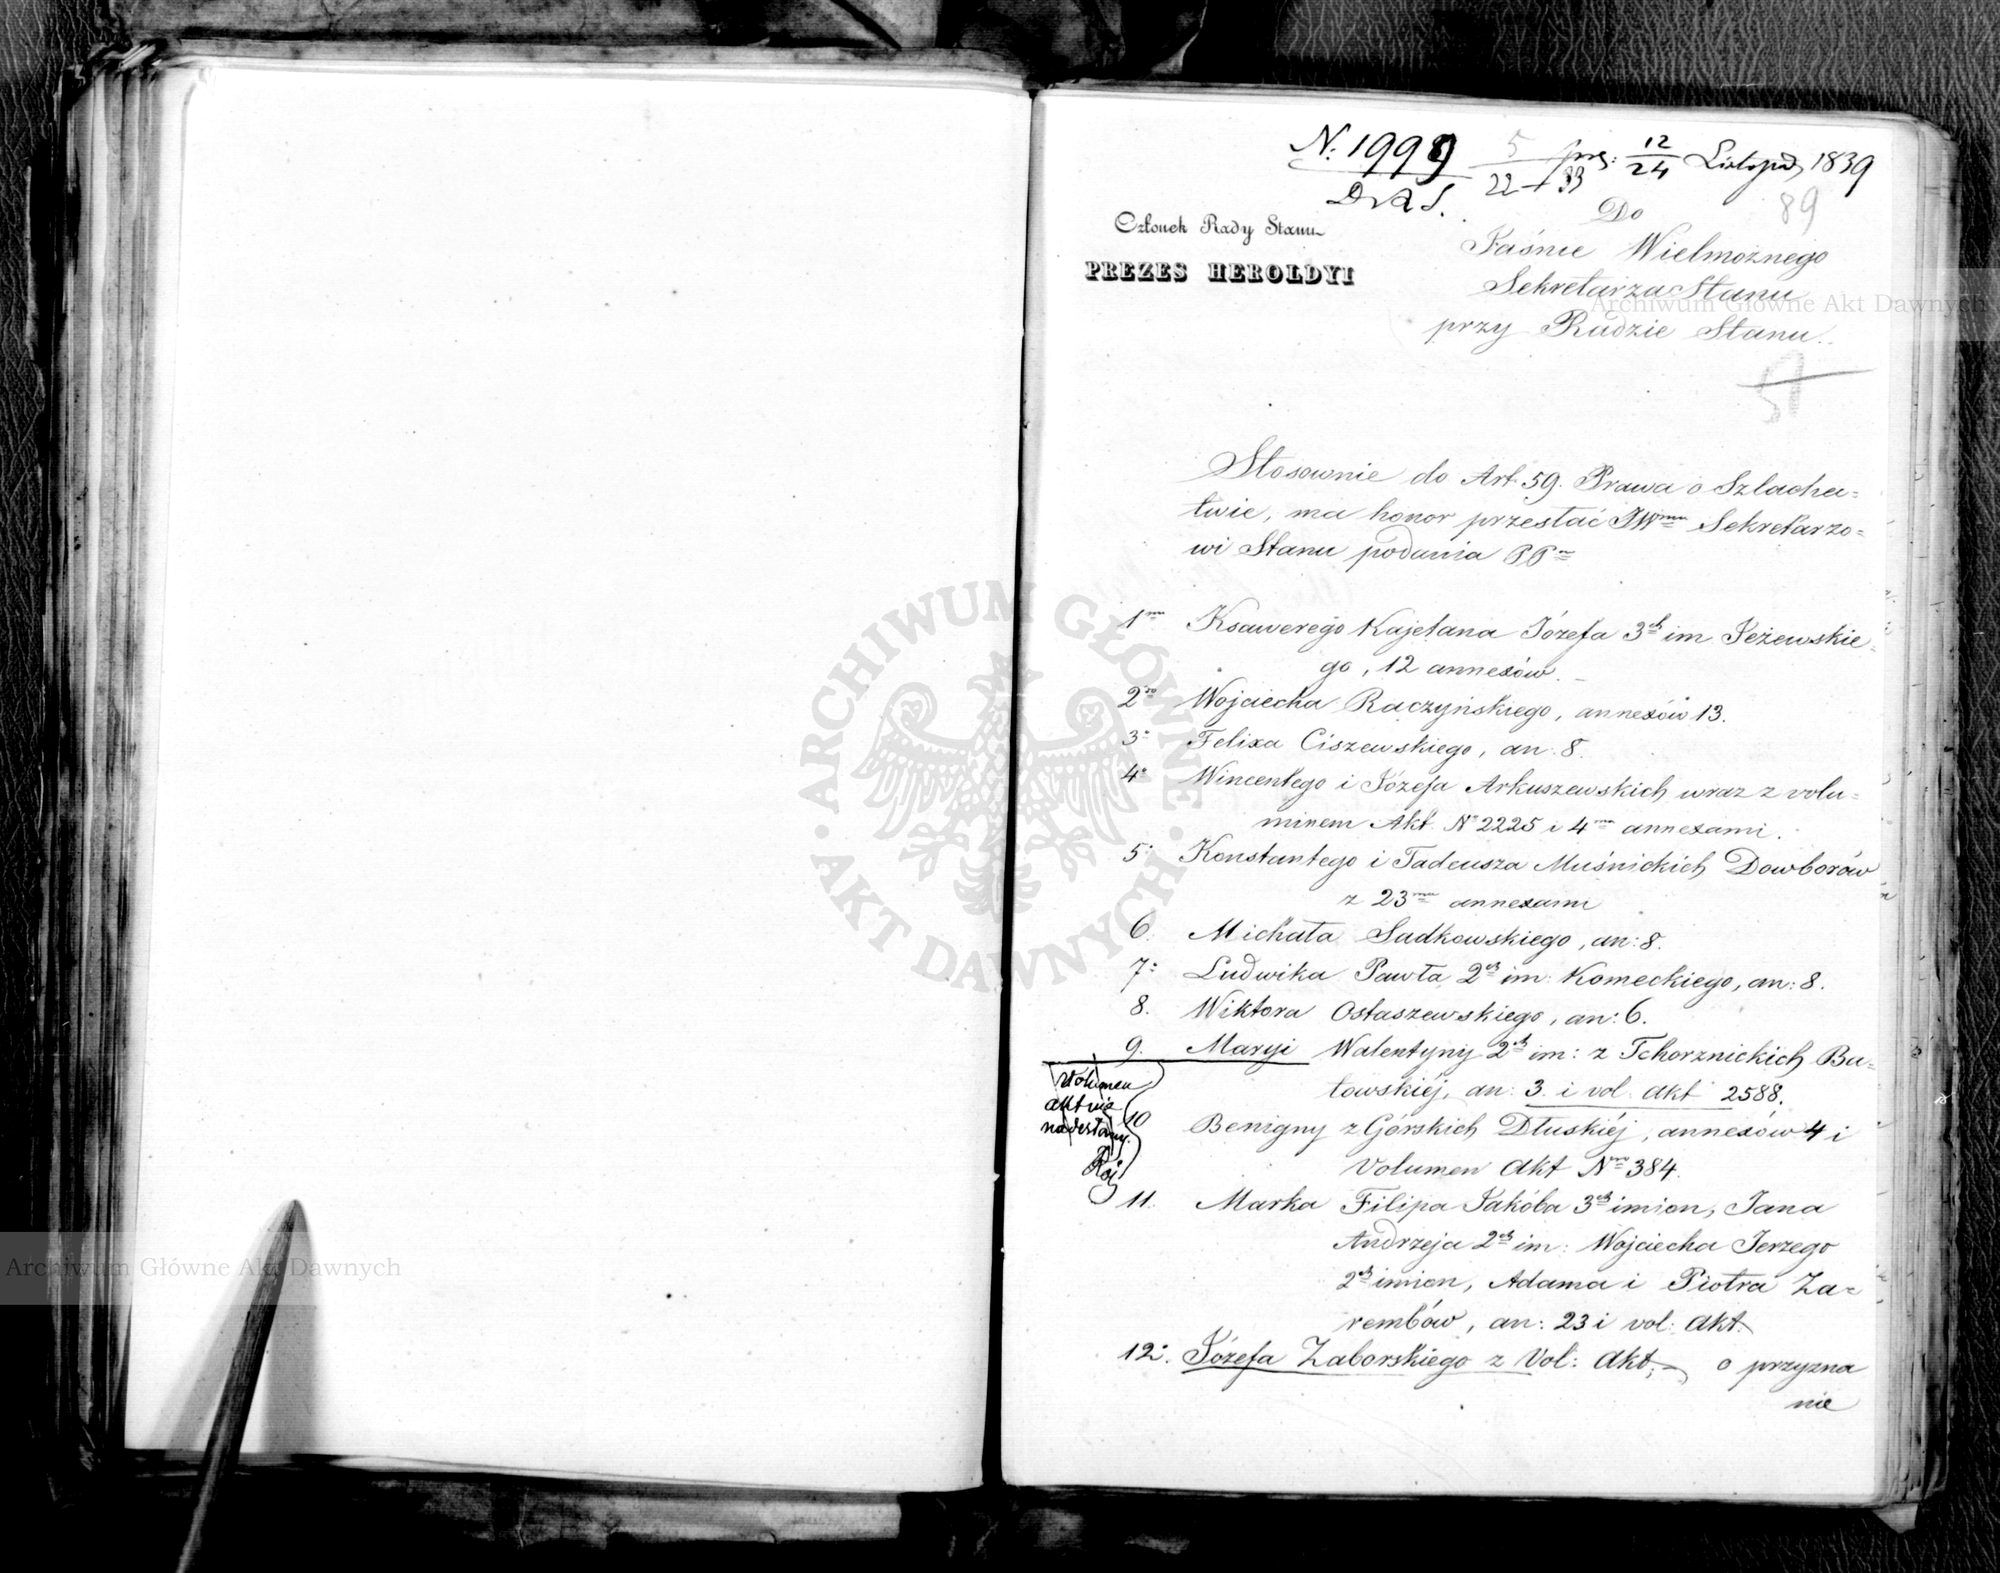 N. 1999 5/22 prez: 12/24 Listopad, 1839
D. R. S.
89
Członek Rady Stanu
PREZES HEROLDYI
Do
Jaśnie Wielmożnego
Sekretarza Stanu
przy Radzie Stanu.
51
Stosownie do Art. 59. Prawa o Szlachec=
twie, ma honor przesłać JWmu Sekretarzo=
wi Stanu podania PP
1mo Ksawerego Kajetana Józefa 3ch im Jeżewskie=
go, 12 annexów.
2do Wojciecha Raczyńskiego, annexów 13.
3° Felixa Ciszewskiego, an: 8.
4° Wincentego i Józefa Arkuszewskich wraz z volu=
minem Akt. N° 2225 i 4ma annexami.
5° Konstantego i Tadeusza Muśnickich Dowborów
z 23ma annexami
6. Michała Sadkowskiego, an: 8.
7: Ludwika Pawła 2ch im: Komeckiego, an: 8.
8. Wiktora Ostaszewskiego, an: 6.
9. Maryi Walentyny 2ch im: z Tchorznickich Bu=
towskiéj, an: 3. i vol: akt 2588.
Volumen
akt nie
nadesłany.
Roj
10 Benigny z Górskich Dłuskiéj, annexów 4 i
Volumen akt Nro 384.
11. Marka Filipa Jakóba 3ch imion, Jana
Andrzeja 2ch im: Wojciecha Jerzego
2ch imion, Adama i Piotra Za=
rembów, an: 23 i vol: akt.
12: Józefa Zaborskiego z Vol: akt, o przyzna
nie
ARCHIWUM GŁÓWNE · AKT DAWNYCH ·
Archiwum Główne Akt Dawnych
Archiwum Główne Akt Dawnych